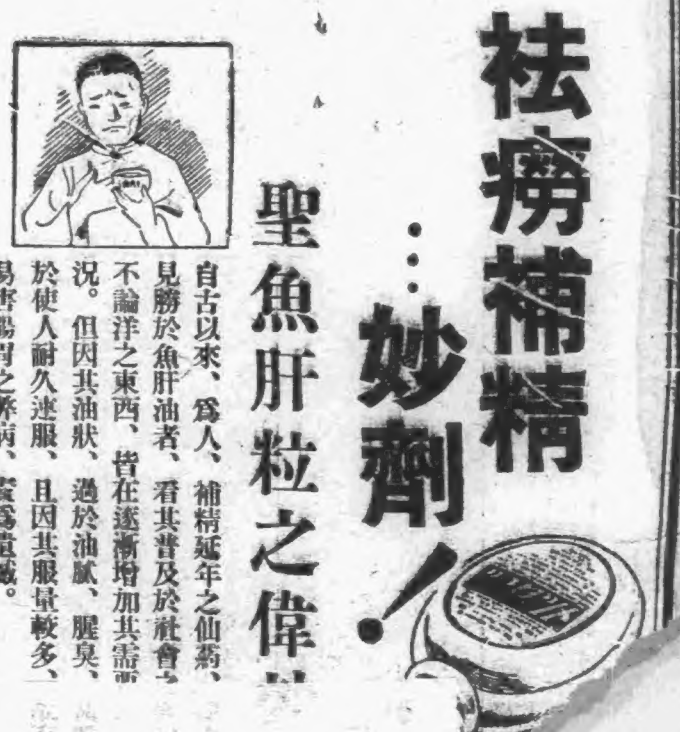 祛癆補精
…妙劑！
聖魚肝粒之偉
自古以來、爲人、補精延年之仙藥、
見勝於魚肝油者、看其普及於社會之
不論洋之東西、皆在逐漸增加其需要
況。但因其油狀、過於油膩、腥臭、
於使人耐久連服、且因其服量較多、
易害腸胃之弊病、實爲遺憾。